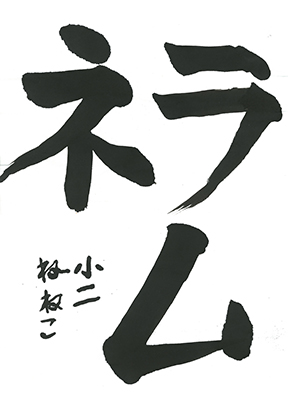 ラム
ネ
小二
ねねこ